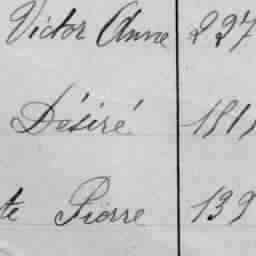 Victor Anne 227
Désiré 181
te Pierre 139